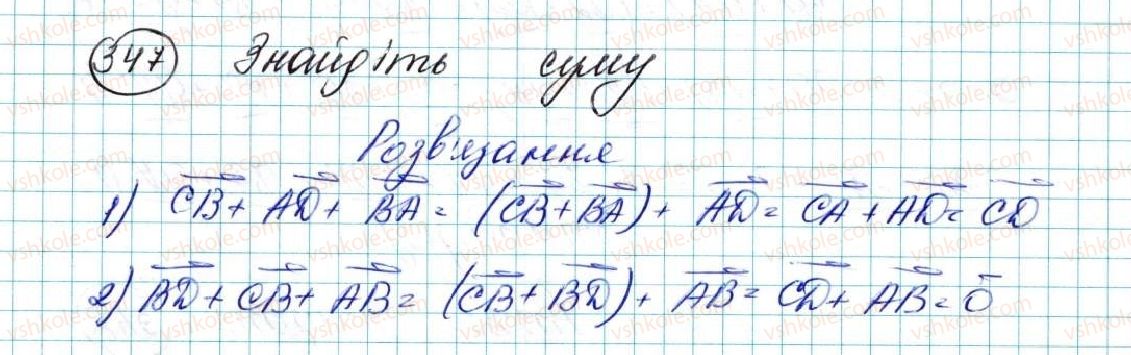 347 Знайдіть суму
Розв'язання
1) \overrightarrow{CB} + \overrightarrow{AD} + \overrightarrow{BA} = (\overrightarrow{CB} + \overrightarrow{BA}) + \overrightarrow{AD} = \overrightarrow{CA} + \overrightarrow{AD} = \overrightarrow{CD}
2) \overrightarrow{BD} + \overrightarrow{CB} + \overrightarrow{AB} = (\overrightarrow{CB} + \overrightarrow{BD}) + \overrightarrow{AB} = \overrightarrow{CD} + \overrightarrow{AB} = \overline{0}